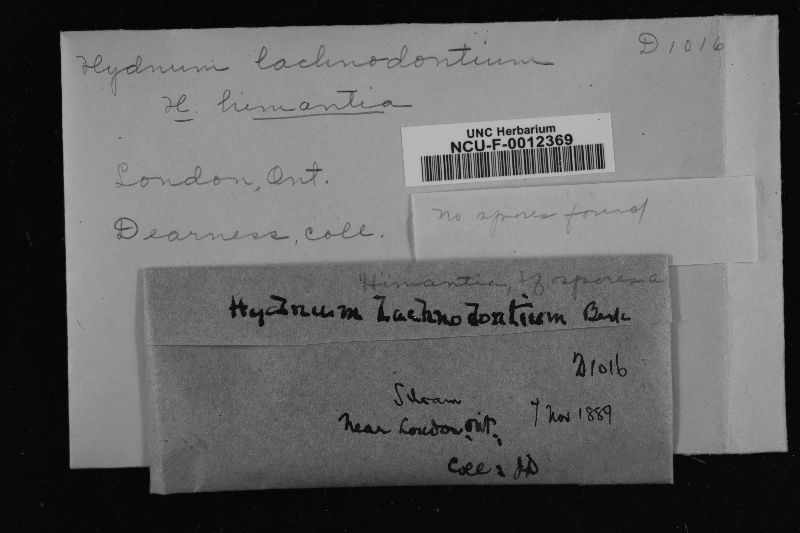 Hydnum lachnodontium D1016
H. himantia
UNC Herbarium
NCU-F-0012369
London, Ont.
no spores found
Dearness, coll.
Himantia, if spores a
Hydnum Lachnodontium Berk
D1016
near London, Ont. 7 Nov 1889
Coll: JD